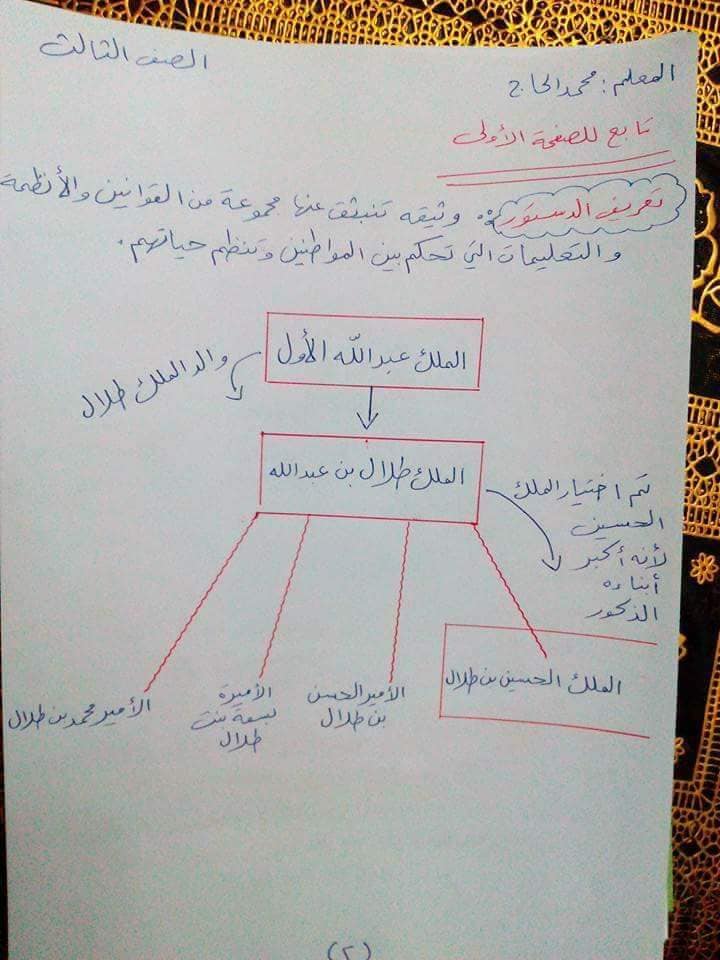 المعلم : محمد الحاج
الصف الثالث
تابع للصفحة الأولى
تعريف الدستور : وثيقه تنبثق عنها مجموعة من القوانين والأنظمة
والتعليمات التي تحكم بين المواطنين وتنظم حياتهم .
الملك عبد الله الأول
والد الملك طلال
الملك طلال بن عبد الله
تم اختيار الملك
الحسين
لأنه أكبر
أبناءه
الذكور
الملك الحسين بن طلال
الأمير الحسن
بن طلال
الأميرة
بسمة بنت
طلال
الأمير محمد بن طلال
(٢)